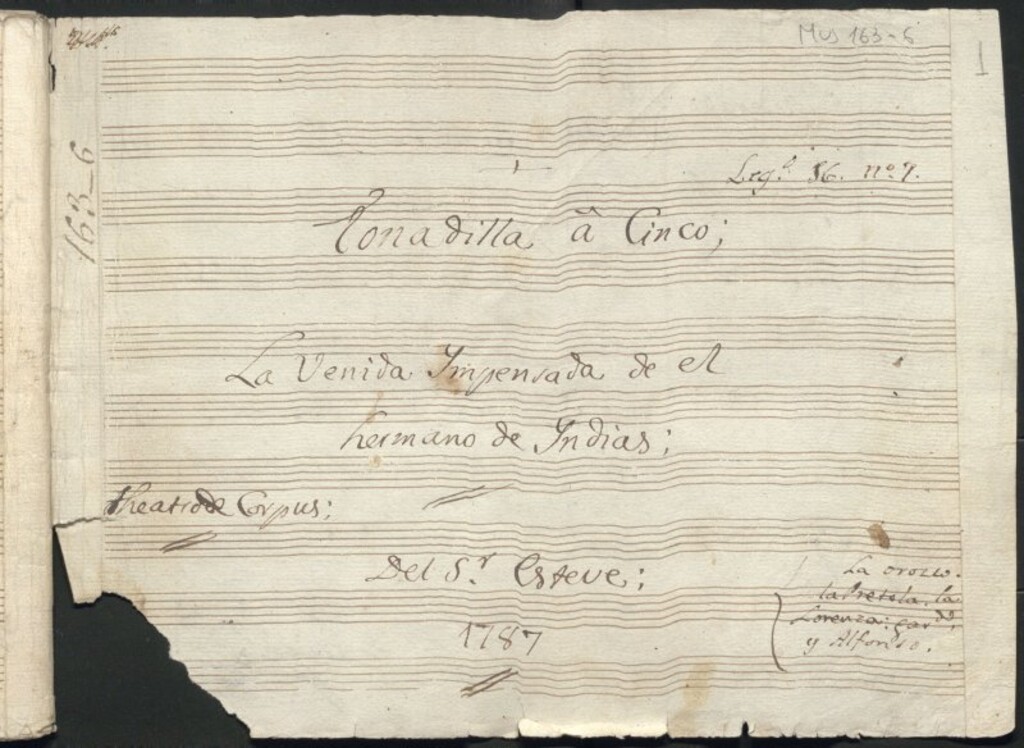 Mus 163-6
1
163-6
Leg.º 16. nº 7.
Tonadilla â Cinco;
La Venida Impensada de el
hermano de Indias;
theatro de Corpus;
Del S.r Esteve;
1787
La orozco.
la Pretola. la
Lorenza: gar.do,
y Alfonso.